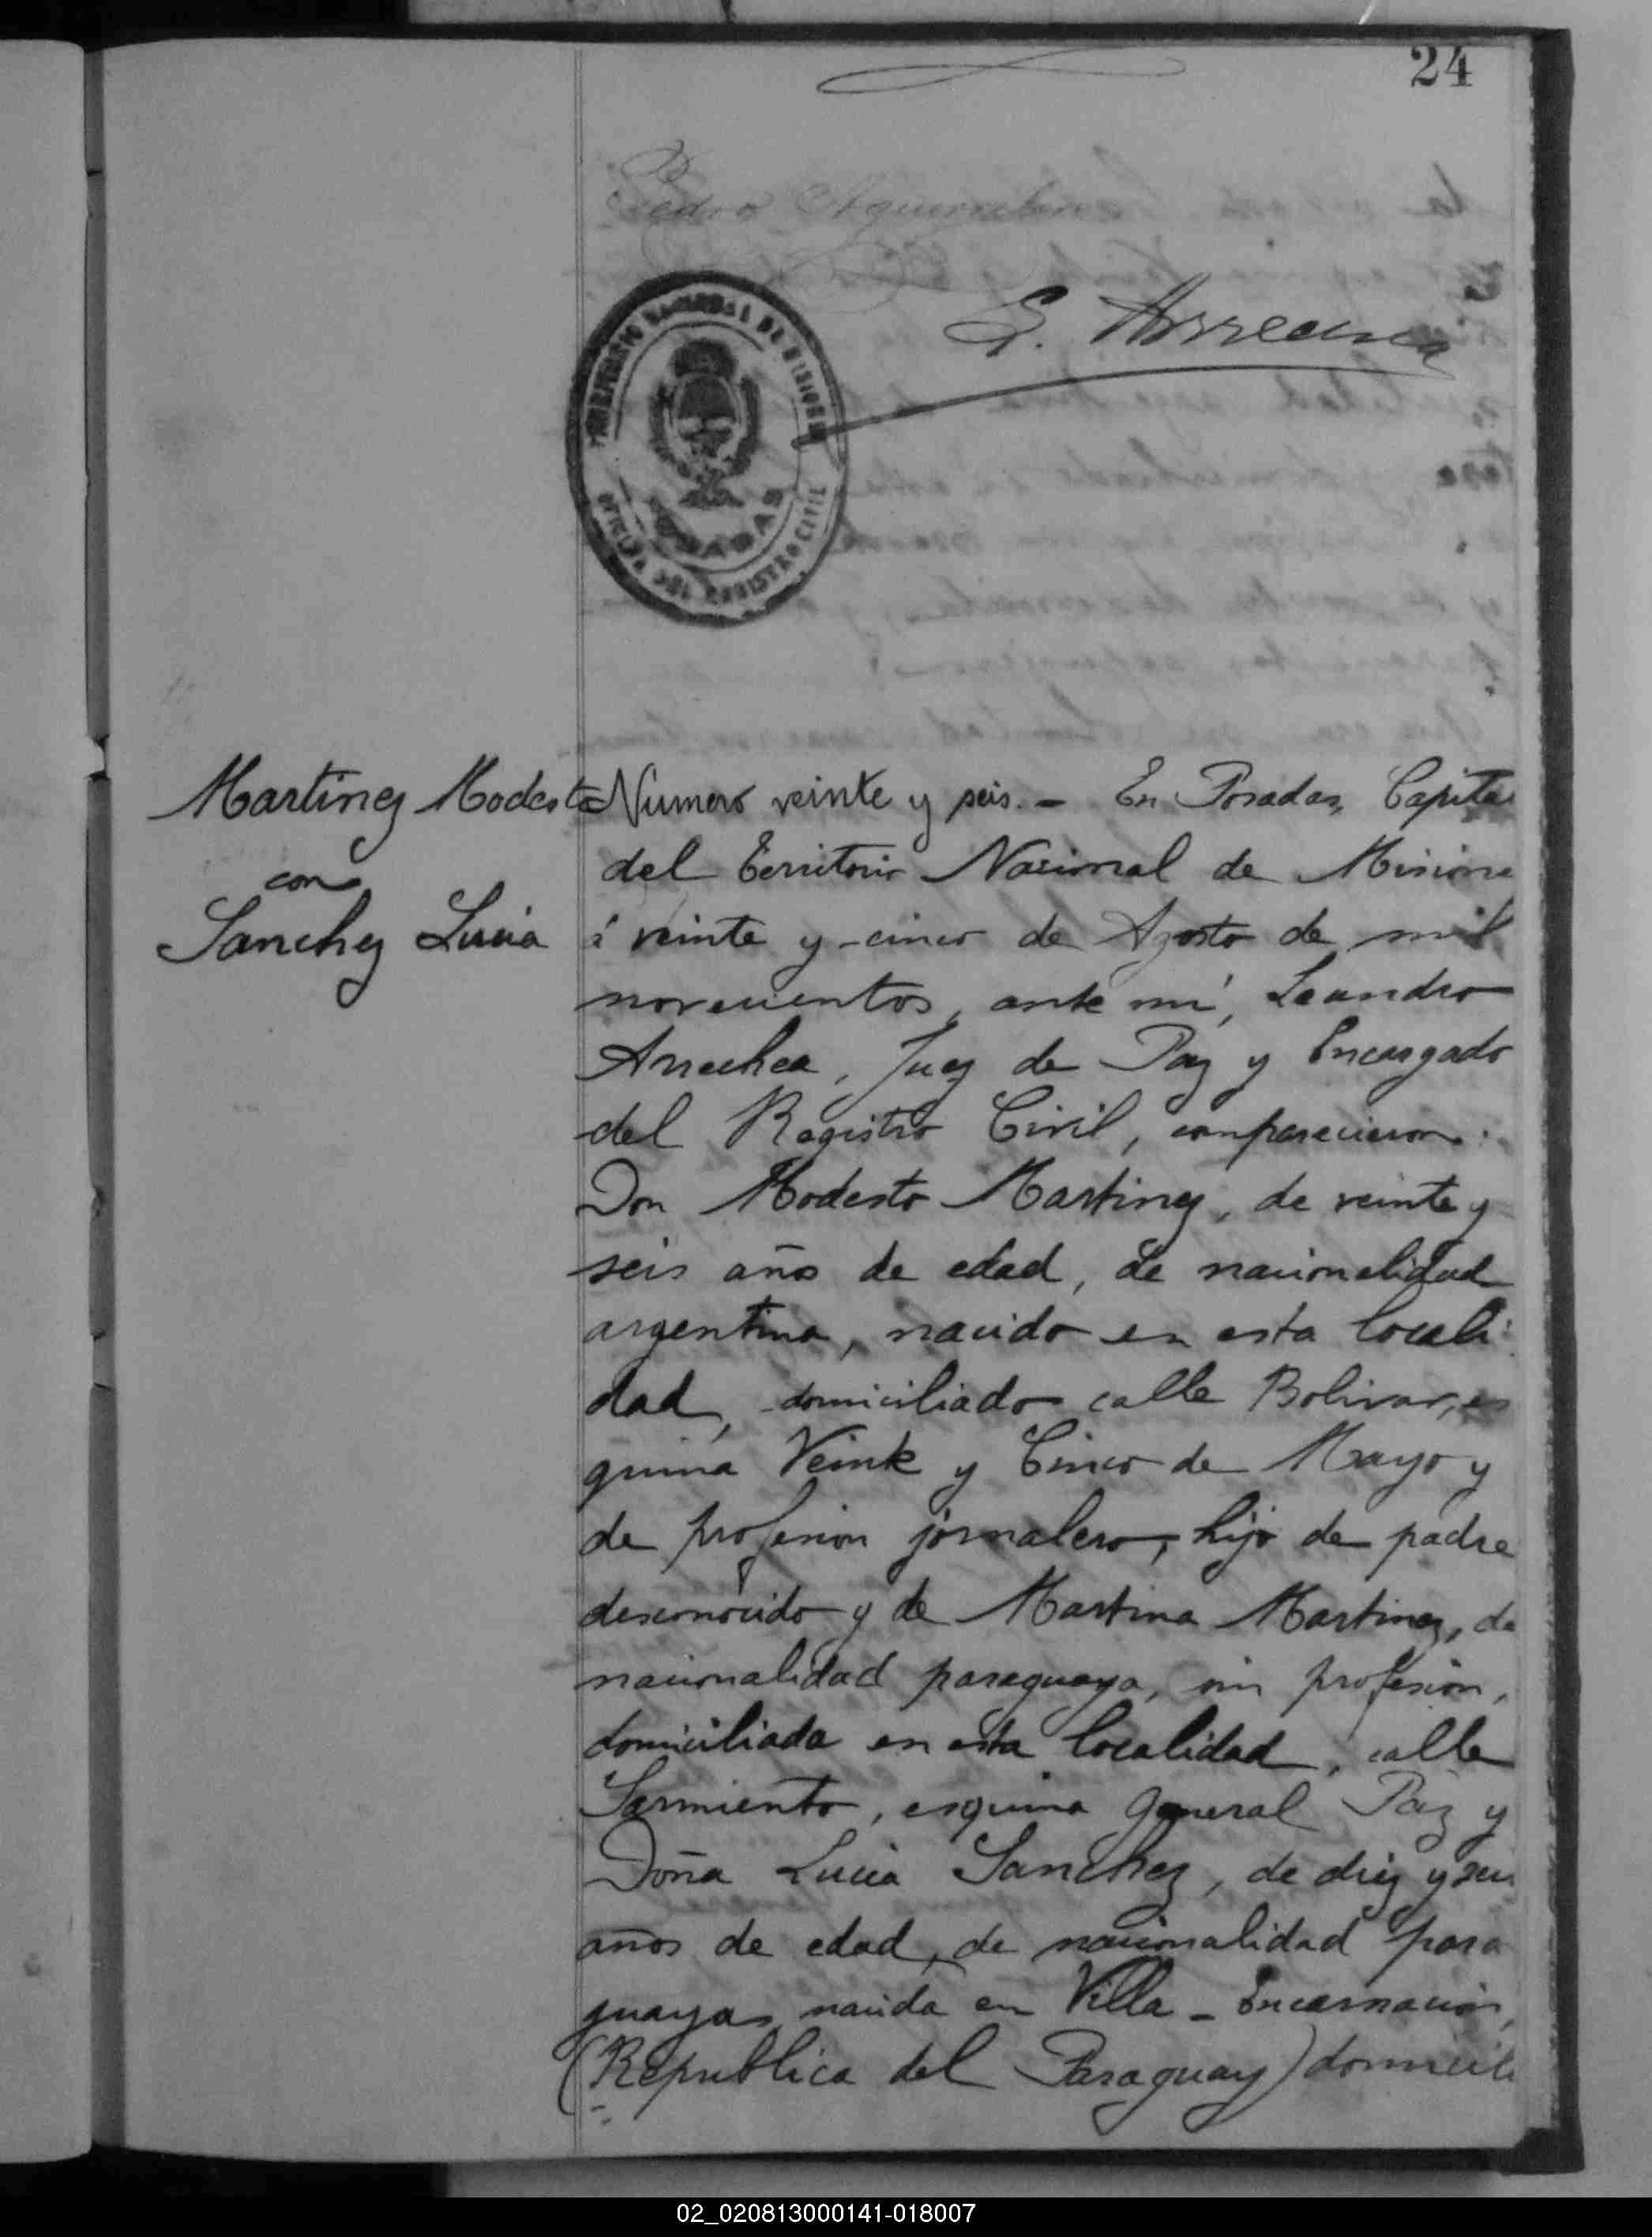 24
Pedro
L. Arrechea
TERRITORIO NACIONAL DE MISIONES
POSADAS
OFICINA DEL REGISTRO CIVIL
Martinez Modesto
con
Sanchez Lucia
Número veinte y seis. - En Posadas, Capital
del Territorio Nacional de Misiones
á veinte y cinco de Agosto de mil
novecientos, ante mí, Leandro
Arrechea, Juez de Paz y Encargado
del Registro Civil, comparecieron:
Don Modesto Martinez, de veinte y
seis años de edad, de nacionalidad
argentina, nacido en esta locali-
dad, domiciliado calle Bolivar, es
quina Veinte y Cinco de Mayo y
de profesion jornalero, hijo de padre
desconocido y de Martina Martinez, de
nacionalidad paraguaya, sin profesión,
domiciliada en esta localidad, calle
Sarmiento, esquina General Paz y
Doña Lucia Sanchez, de diez y seis
años de edad, de nacionalidad para
guaya, nacida en Villa - Encarnación,
(Republica del Paraguay) domicili
02_020813000141-018007